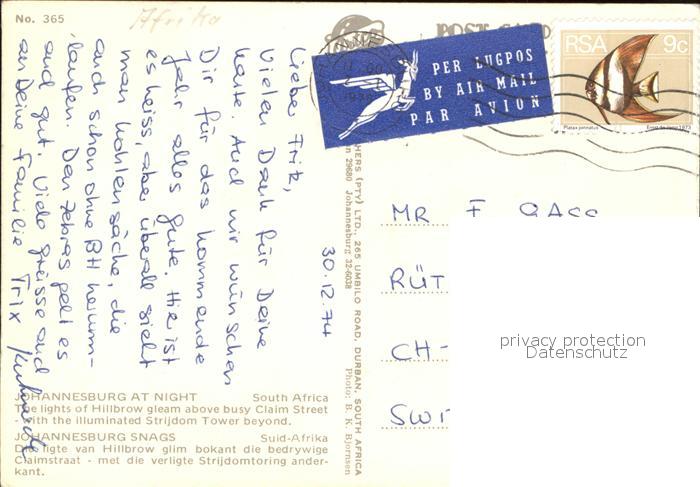 No. 365
Afrika
POST CARD
PER LUGPOS
BY AIR MAIL
PAR AVION
RSA 9c
Platax pinnatus
Lieber Fritz,
Vielen Dank für Deine
Karte. Auch wir wünschen
Dir für das kommende
Jahr alles gute. Hier ist
es heiss, aber überall sieht
man
auch schon ohne BH herum-
laufen. Den Zebras geht es
auch gut. Viele grüsse auch
an Deine Familie Trix
30.12.74
HERS (PTY) LTD., 265 UMBILO ROAD, DURBAN, SOUTH AFRICA
29680 Johannesburg 32-6038
Photo: B. K. Bjornsen
MR F
RÜT
CH-
SWI
privacy protection
Datenschutz
JOHANNESBURG AT NIGHT South Africa
The lights of Hillbrow gleam above busy Claim Street
- with the illuminated Strijdom Tower beyond.
JOHANNESBURG SNAGS Suid-Afrika
Die ligte van Hillbrow glim bokant die bedrywige
Claimstraat - met die verligte Strijdomtoring ander-
kant.